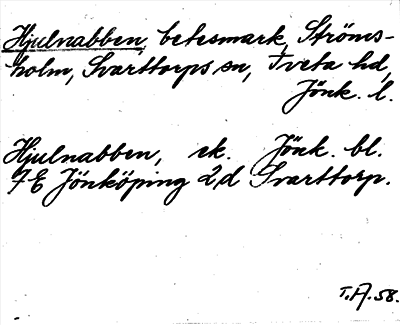 Hjulnabben, betesmark, Ströms-
holm, Svarttorps sn, Tveta hd,
Jönk. l.
Hjulnabben, ek. Jönk. bl.
7E Jönköping 2d Svarttorp.
T.A. 58.